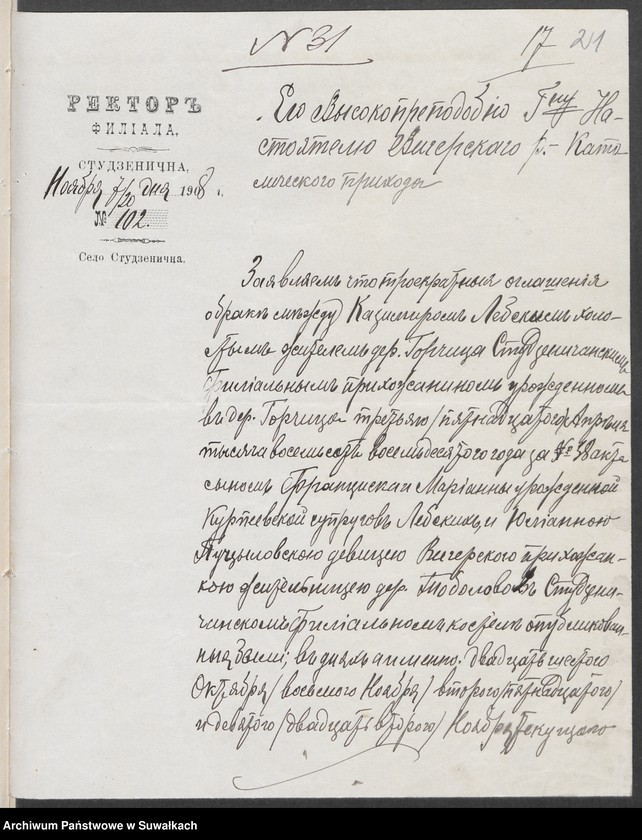 N 31
17 21
РЕКТОРЪ
ФИЛІАЛА,
СТУДЗЕНИЧНА,
Ноября 7/20 дня 1908 г.
№ 102.
Село Студзенична.
Его Высокопреподобію Гну На-
стоятелю Вигерскаго р.- Като
лическаго прихода
Заявляемъ что троекратныя оглашенія
о бракѣ между Казимиромъ Лебскимъ холо-
стымъ жителемъ дер. Горчица Студзеничанскимъ
филіальнымъ прихожаниномъ урожденномъ
въ дер. Горчица третьяго /пятнадцатого/ Апрѣля
тысяча восемьсотъ восемьдесятого года за № акта
сыномъ Францишка и Маріанны урожденной
Куртевской супруговъ Лебскихъ, и Юліанною
дѣвицею Вигерского прихожан-
кою жительницею дер. Тоболово въ Студзени-
чинскомъ филіальномъ костелѣ опубликован-
ны были; въ дняхъ а именно: двадцать шестого
Октября /восьмого Ноября/ второго /пятнадцатого/
и девятого /двадцать второго/ Ноября текущаго
Archiwum Państwowe w Suwałkach